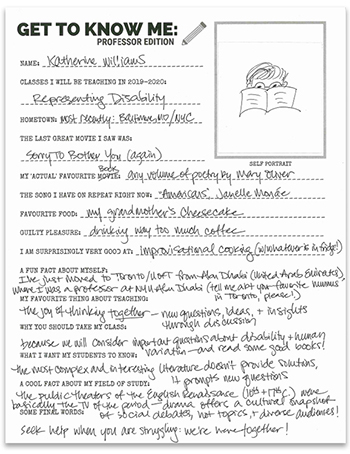 GET TO KNOW ME:
PROFESSOR EDITION
NAME: Katherine Williams
CLASSES I WILL BE TEACHING IN 2019-2020:
Representing Disability
HOMETOWN: most recently: Baltimore, MD/NYC
THE LAST GREAT MOVIE I SAW WAS:
Sorry To Bother You (again)
SELF PORTRAIT
Book:
MY 'ACTUAL' FAVOURITE MOVIE: any volume of poetry by Mary Oliver
THE SONG I HAVE ON REPEAT RIGHT NOW: "Americans", Janelle Monáe
FAVOURITE FOOD: my grandmother's cheesecake
GUILTY PLEASURE: drinking way too much coffee
I AM SURPRISINGLY VERY GOOD AT: Improvisational cooking (w/whatever is in fridge!)
A FUN FACT ABOUT MYSELF:
I've just moved to Toronto/UofT from Abu Dhabi (United Arab Emirates)
where I was a professor at NYU Abu Dhabi (tell me abt your favorite hummus
in Toronto, please!)
MY FAVOURITE THING ABOUT TEACHING:
the joy of thinking together - new questions, ideas, + insights
through discussion
WHY YOU SHOULD TAKE MY CLASS:
because we will consider important questions about disability + human
variation - and read some good books!
WHAT I WANT MY STUDENTS TO KNOW:
the most complex and interesting literature doesn't provide solutions,
it prompts new questions
A COOL FACT ABOUT MY FIELD OF STUDY:
the public theaters of the English Renaissance (16th + 17th C.) were
basically the TV of the period - drama offers a cultural snapshot
of social debates, hot topics, + diverse audiences!
SOME FINAL WORDS:
Seek help when you are struggling: we're here together!